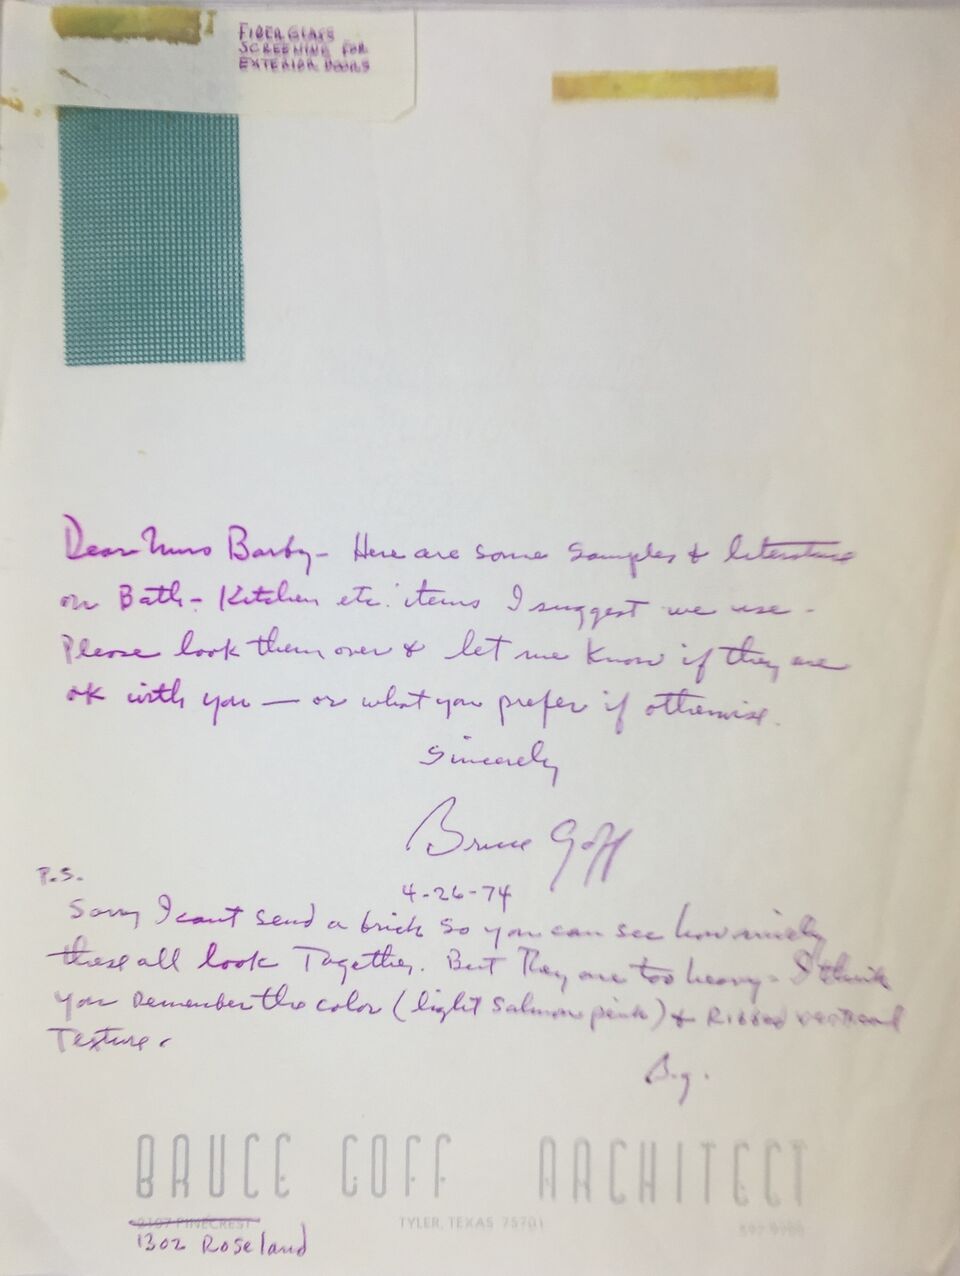 FIBERGLASS
SCREENING FOR
EXTERIOR DOORS
Dear Mrs Barby - Here are some samples & literature
on Bath - Kitchen etc. items I suggest we use -
Please look them over & let me know if they are
OK with you — or what you prefer if otherwise.
Sincerely
Bruce Goff
4-26-74
P.S.
Sorry I cant send a brick so you can see how nicely
these all look Together. But They are too heavy - I think
you remember the color (light salmon pink) & Ribbed vertical
Texture.
B.g.
BRUCE GOFF ARCHITECT
2107 PINECREST TYLER, TEXAS 75701
1302 Roseland